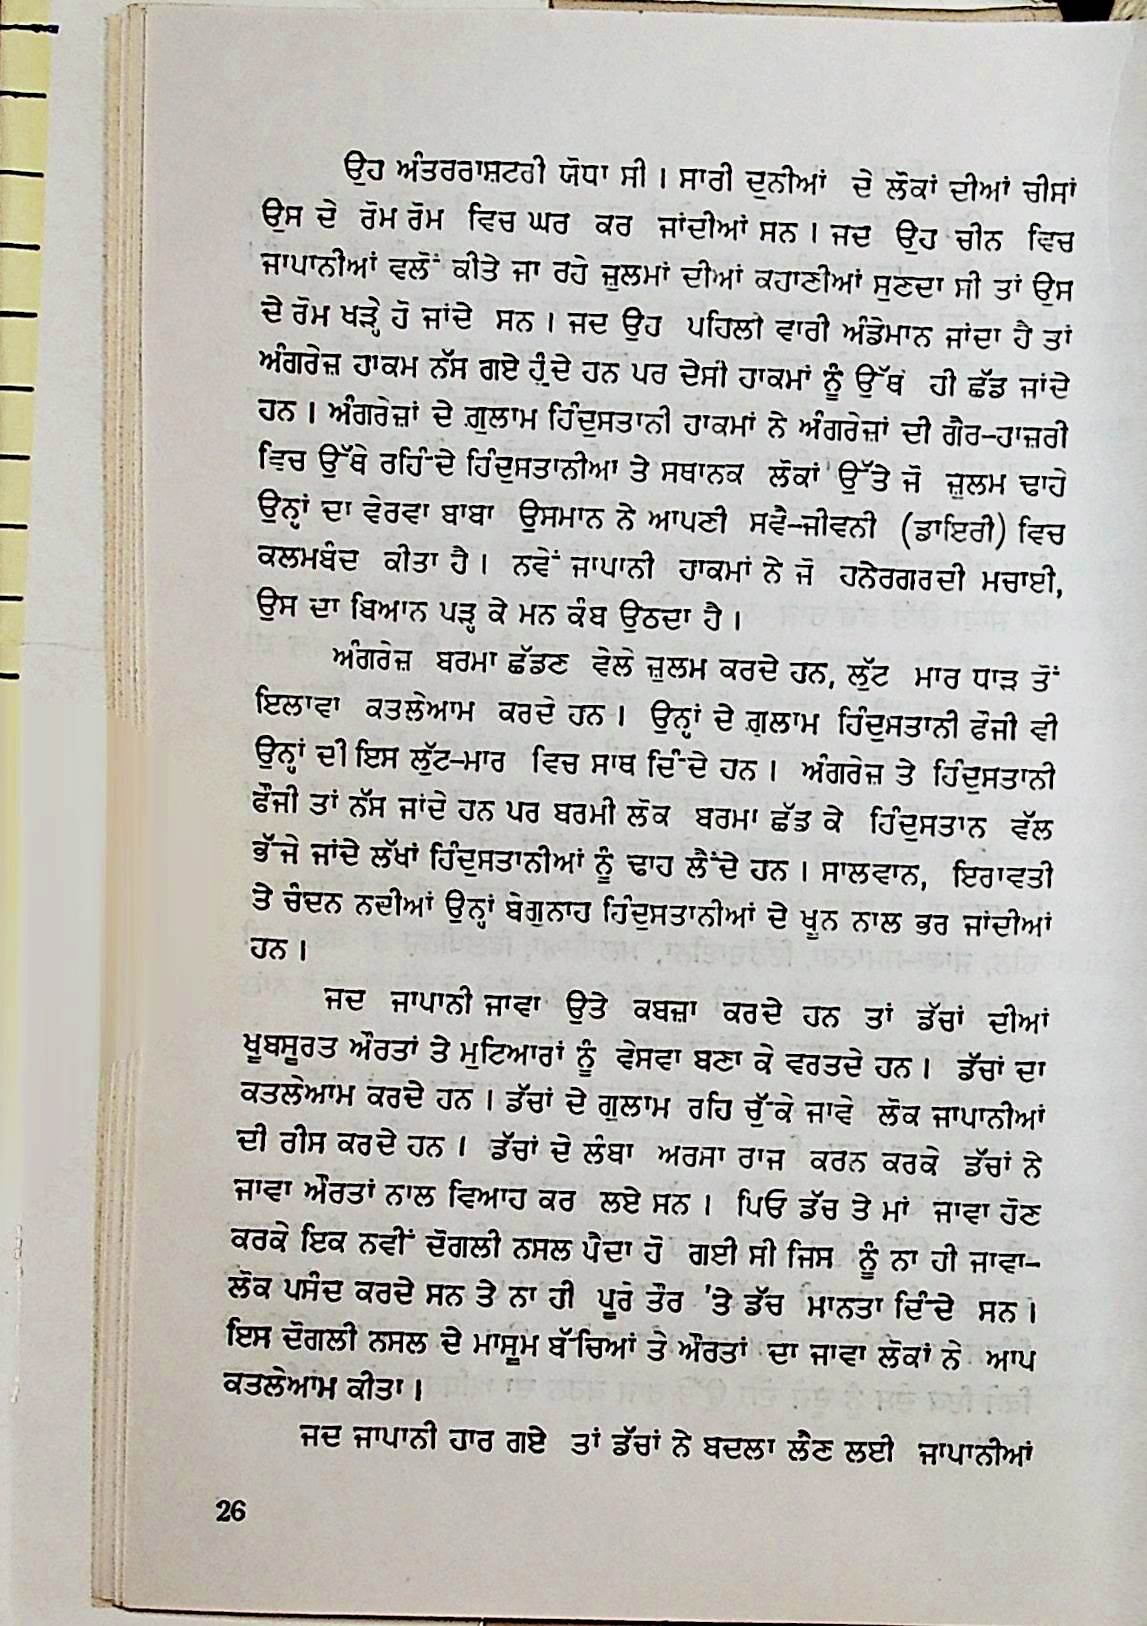 ਉਹ ਅੰਤਰਰਾਸ਼ਟਰੀ ਯੋਧਾ ਸੀ । ਸਾਰੀ ਦੁਨੀਆਂ ਦੇ ਲੋਕਾਂ ਦੀਆਂ ਚੀਸਾਂ
ਉਸ ਦੇ ਰੋਮ ਰੋਮ ਵਿਚ ਘਰ ਕਰ ਜਾਂਦੀਆਂ ਸਨ । ਜਦ ਉਹ ਚੀਨ ਵਿਚ
ਜਾਪਾਨੀਆਂ ਵਲੋਂ ਕੀਤੇ ਜਾ ਰਹੇ ਜ਼ੁਲਮਾਂ ਦੀਆਂ ਕਹਾਣੀਆਂ ਸੁਣਦਾ ਸੀ ਤਾਂ ਉਸ
ਦੇ ਰੋਮ ਖੜ੍ਹੇ ਹੋ ਜਾਂਦੇ ਸਨ । ਜਦ ਉਹ ਪਹਿਲੀ ਵਾਰੀ ਅੰਡੇਮਾਨ ਜਾਂਦਾ ਹੈ ਤਾਂ
ਅੰਗਰੇਜ਼ ਹਾਕਮ ਨੱਸ ਗਏ ਹੁੰਦੇ ਹਨ ਪਰ ਦੇਸੀ ਹਾਕਮਾਂ ਨੂੰ ਉੱਥੇ ਹੀ ਛੱਡ ਜਾਂਦੇ
ਹਨ । ਅੰਗਰੇਜ਼ਾਂ ਦੇ ਗ਼ੁਲਾਮ ਹਿੰਦੁਸਤਾਨੀ ਹਾਕਮਾਂ ਨੇ ਅੰਗਰੇਜ਼ਾਂ ਦੀ ਗੈਰ-ਹਾਜ਼ਰੀ
ਵਿਚ ਉੱਥੇ ਰਹਿੰਦੇ ਹਿੰਦੁਸਤਾਨੀਆ ਤੇ ਸਥਾਨਕ ਲੋਕਾਂ ਉੱਤੇ ਜੋ ਜ਼ੁਲਮ ਢਾਹੇ
ਉਨ੍ਹਾਂ ਦਾ ਵੇਰਵਾ ਬਾਬਾ ਉਸਮਾਨ ਨੇ ਆਪਣੀ ਸਵੈ-ਜੀਵਨੀ (ਡਾਇਰੀ) ਵਿਚ
ਕਲਮਬੰਦ ਕੀਤਾ ਹੈ । ਨਵੇਂ ਜਾਪਾਨੀ ਹਾਕਮਾਂ ਨੇ ਜੋ ਹਨੇਰਗਰਦੀ ਮਚਾਈ,
ਉਸ ਦਾ ਬਿਆਨ ਪੜ੍ਹ ਕੇ ਮਨ ਕੰਬ ਉਠਦਾ ਹੈ ।
ਅੰਗਰੇਜ਼ ਬਰਮਾ ਛੱਡਣ ਵੇਲੇ ਜ਼ੁਲਮ ਕਰਦੇ ਹਨ, ਲੁੱਟ ਮਾਰ ਧਾੜ ਤੋਂ
ਇਲਾਵਾ ਕਤਲੇਆਮ ਕਰਦੇ ਹਨ । ਉਨ੍ਹਾਂ ਦੇ ਗ਼ੁਲਾਮ ਹਿੰਦੁਸਤਾਨੀ ਫੌਜੀ ਵੀ
ਉਨ੍ਹਾਂ ਦੀ ਇਸ ਲੁੱਟ-ਮਾਰ ਵਿਚ ਸਾਥ ਦਿੰਦੇ ਹਨ । ਅੰਗਰੇਜ਼ ਤੇ ਹਿੰਦੁਸਤਾਨੀ
ਫੌਜੀ ਤਾਂ ਨੱਸ ਜਾਂਦੇ ਹਨ ਪਰ ਬਰਮੀ ਲੋਕ ਬਰਮਾ ਛੱਡ ਕੇ ਹਿੰਦੁਸਤਾਨ ਵੱਲ
ਭੱਜੇ ਜਾਂਦੇ ਲੱਖਾਂ ਹਿੰਦੁਸਤਾਨੀਆਂ ਨੂੰ ਢਾਹ ਲੈਂਦੇ ਹਨ । ਸਾਲਵਾਨ, ਇਰਾਵਤੀ
ਤੇ ਚੰਦਨ ਨਦੀਆਂ ਉਨ੍ਹਾਂ ਬੇਗੁਨਾਹ ਹਿੰਦੁਸਤਾਨੀਆਂ ਦੇ ਖੂਨ ਨਾਲ ਭਰ ਜਾਂਦੀਆਂ
ਹਨ ।
ਜਦ ਜਾਪਾਨੀ ਜਾਵਾ ਉਤੇ ਕਬਜ਼ਾ ਕਰਦੇ ਹਨ ਤਾਂ ਡੱਚਾਂ ਦੀਆਂ
ਖੂਬਸੂਰਤ ਔਰਤਾਂ ਤੇ ਮੁਟਿਆਰਾਂ ਨੂੰ ਵੇਸਵਾ ਬਣਾ ਕੇ ਵਰਤਦੇ ਹਨ । ਡੱਚਾਂ ਦਾ
ਕਤਲੇਆਮ ਕਰਦੇ ਹਨ । ਡੱਚਾਂ ਦੇ ਗੁਲਾਮ ਰਹਿ ਚੁੱਕੇ ਜਾਵੇ ਲੋਕ ਜਾਪਾਨੀਆਂ
ਦੀ ਰੀਸ ਕਰਦੇ ਹਨ । ਡੱਚਾਂ ਦੇ ਲੰਬਾ ਅਰਸਾ ਰਾਜ ਕਰਨ ਕਰਕੇ ਡੱਚਾਂ ਨੇ
ਜਾਵਾ ਔਰਤਾਂ ਨਾਲ ਵਿਆਹ ਕਰ ਲਏ ਸਨ । ਪਿਓ ਡੱਚ ਤੇ ਮਾਂ ਜਾਵਾ ਹੋਣ
ਕਰਕੇ ਇਕ ਨਵੀਂ ਦੋਗਲੀ ਨਸਲ ਪੈਦਾ ਹੋ ਗਈ ਸੀ ਜਿਸ ਨੂੰ ਨਾ ਹੀ ਜਾਵਾ-
ਲੋਕ ਪਸੰਦ ਕਰਦੇ ਸਨ ਤੇ ਨਾ ਹੀ ਪੂਰੇ ਤੌਰ 'ਤੇ ਡੱਚ ਮਾਨਤਾ ਦਿੰਦੇ ਸਨ ।
ਇਸ ਦੋਗਲੀ ਨਸਲ ਦੇ ਮਾਸੂਮ ਬੱਚਿਆਂ ਤੇ ਔਰਤਾਂ ਦਾ ਜਾਵਾ ਲੋਕਾਂ ਨੇ ਆਪ
ਕਤਲੇਆਮ ਕੀਤਾ ।
ਜਦ ਜਾਪਾਨੀ ਹਾਰ ਗਏ ਤਾਂ ਡੱਚਾਂ ਨੇ ਬਦਲਾ ਲੈਣ ਲਈ ਜਾਪਾਨੀਆਂ
26